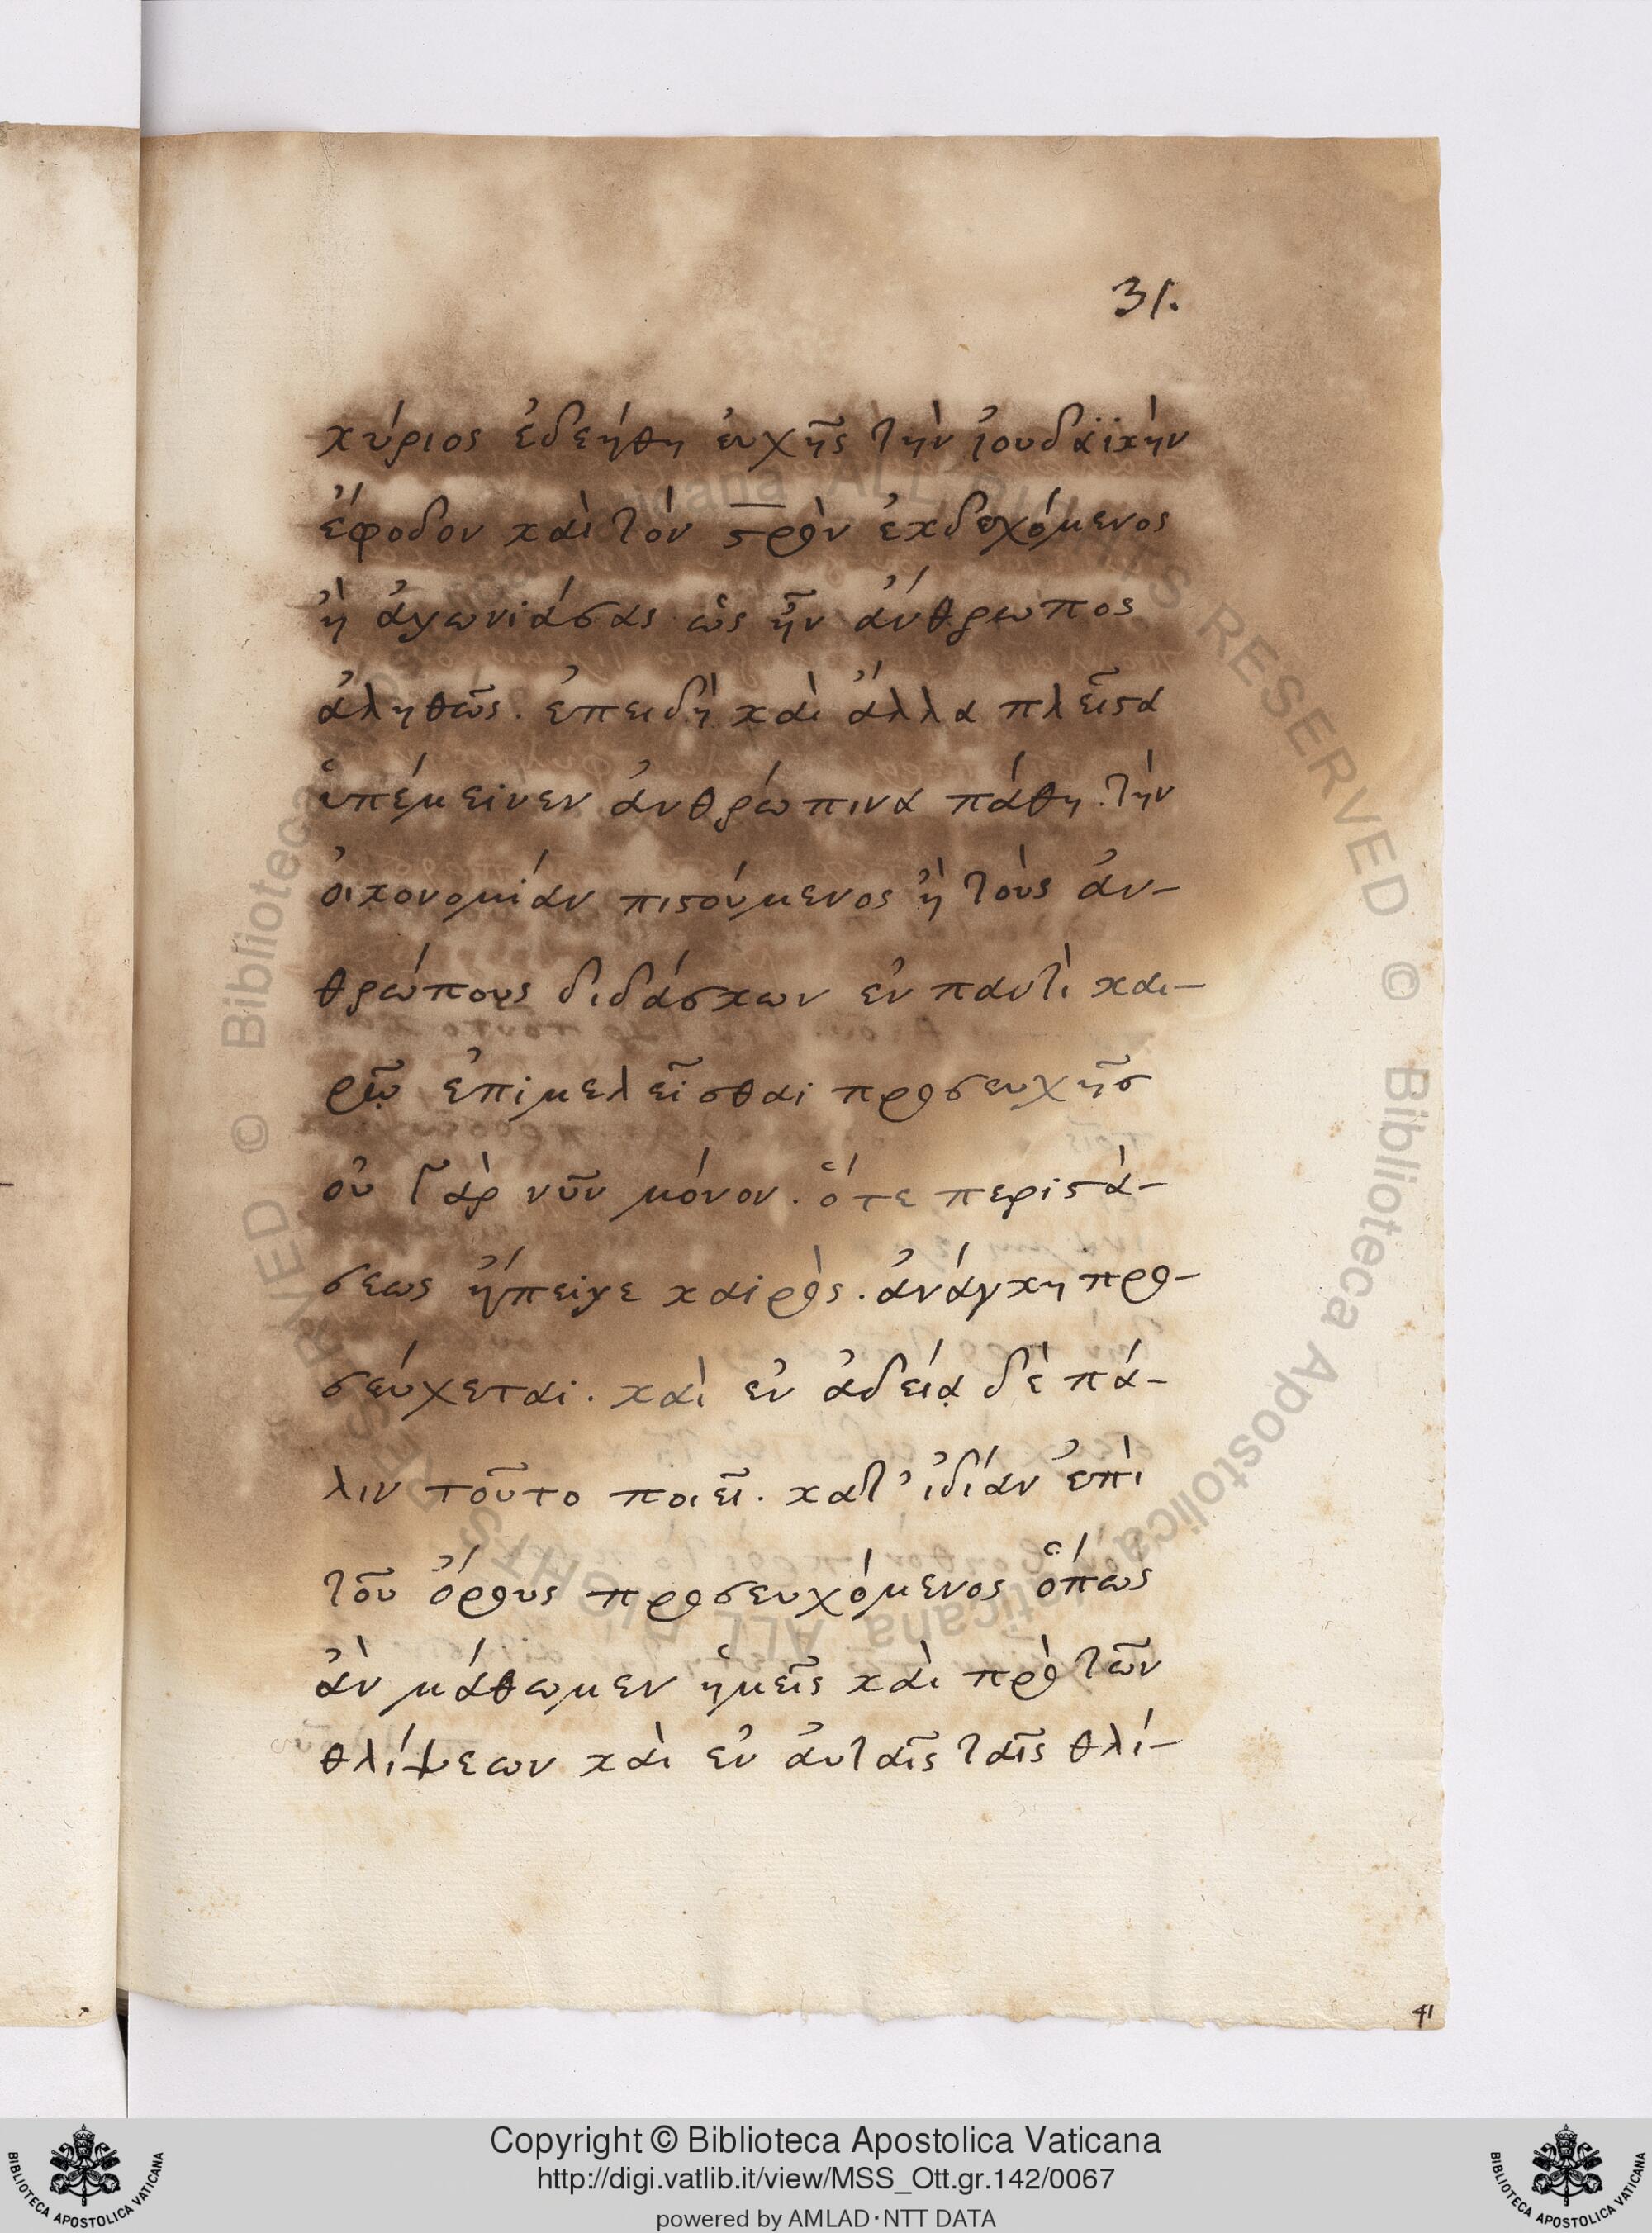 31.
κύριος ἐδεήθη ἐυχῆς τὴν ἰουδαϊκὴν
ἔφοδον καὶ τὸν ϛρὸν ἐκδεχόμενος
ἢ ἀγωνιάσας ὡς ἦν ἄνθρωπος
ἀληθῶς. ἐπειδὴ καὶ ἄλλα πλεῖϛα
ὑπέμεινεν ἀνθρώπινα πάθη. τὴν
ὀικονομίαν πιϛούμενος ἢ τοὺς ἀν-
θρώπους διδάσκων ἐν παντὶ και-
ρῷ ἐπιμελεῖσθαι προσευχῆσ
ὀυ γὰρ νῦν μόνον. ὅτε περιϛά-
σεως ἤπειγε καιρὸς. ἀνάγκη προ-
σεύχεται. καὶ ἐν ἀδείᾳ δὲ πά-
λιν τοῦτο ποιεῖ. κατ' ἰδίαν ἐπὶ
τοῦ ὄρους προσευχόμενος ὅπως
ἂν μάθωμεν ἡμεῖς καὶ πρὸ τῶν
θλίψεων καὶ ἐν ἀυταῖς ταῖς θλί-
41
Copyright © Biblioteca Apostolica Vaticana
http://digi.vatlib.it/view/MSS_Ott.gr.142/0067
powered by AMLAD·NTT DATA
BIBLIOTECA APOSTOLICA VATICANA
BIBLIOTECA APOSTOLICA VATICANA